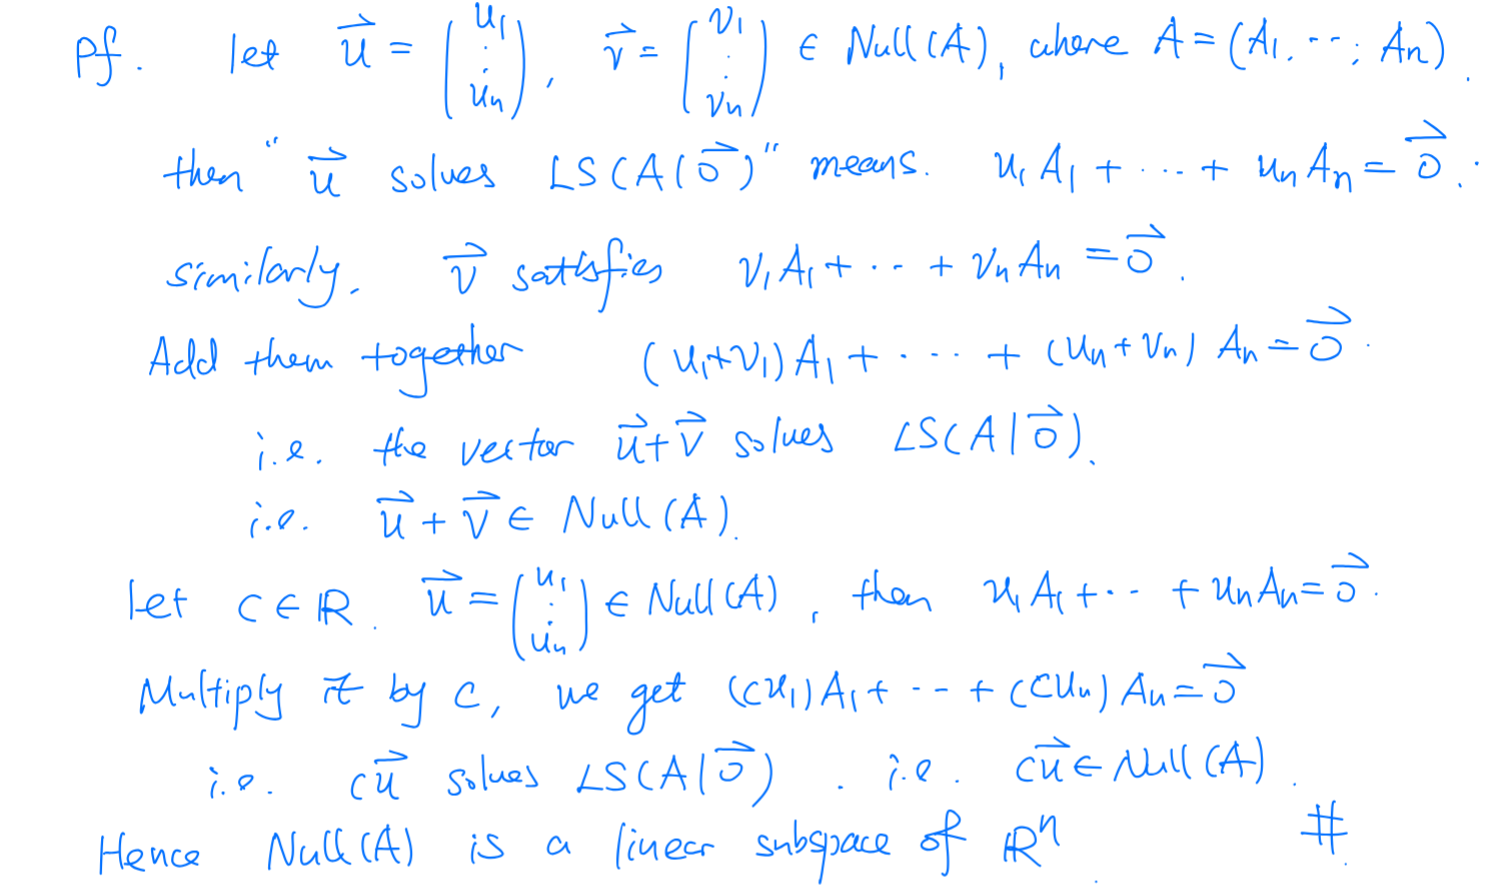 Pf. let u⃗ = (u₁ ⋮ uₙ), v⃗ = (v₁ ⋮ vₙ) ∈ Null(A), where A = (A₁, ⋯, Aₙ).
then "u⃗ solves LS(A|0⃗)" means. u₁A₁ + ⋯ + uₙAₙ = 0⃗.
similarly, v⃗ satisfies v₁A₁ + ⋯ + vₙAₙ = 0⃗.
Add them together (u₁+v₁)A₁ + ⋯ + (uₙ+vₙ)Aₙ = 0⃗.
i.e. the vector u⃗+v⃗ solves LS(A|0⃗).
i.e. u⃗+v⃗ ∈ Null(A).
let c∈ℝ. u⃗ = (u₁ ⋮ uₙ) ∈ Null(A), then u₁A₁ + ⋯ + uₙAₙ = 0⃗.
Multiply it by c, we get (cu₁)A₁ + ⋯ + (cuₙ)Aₙ = 0⃗
i.e. cu⃗ solves LS(A|0⃗). i.e. cu⃗ ∈ Null(A).
Hence Null(A) is a linear subspace of ℝⁿ. #